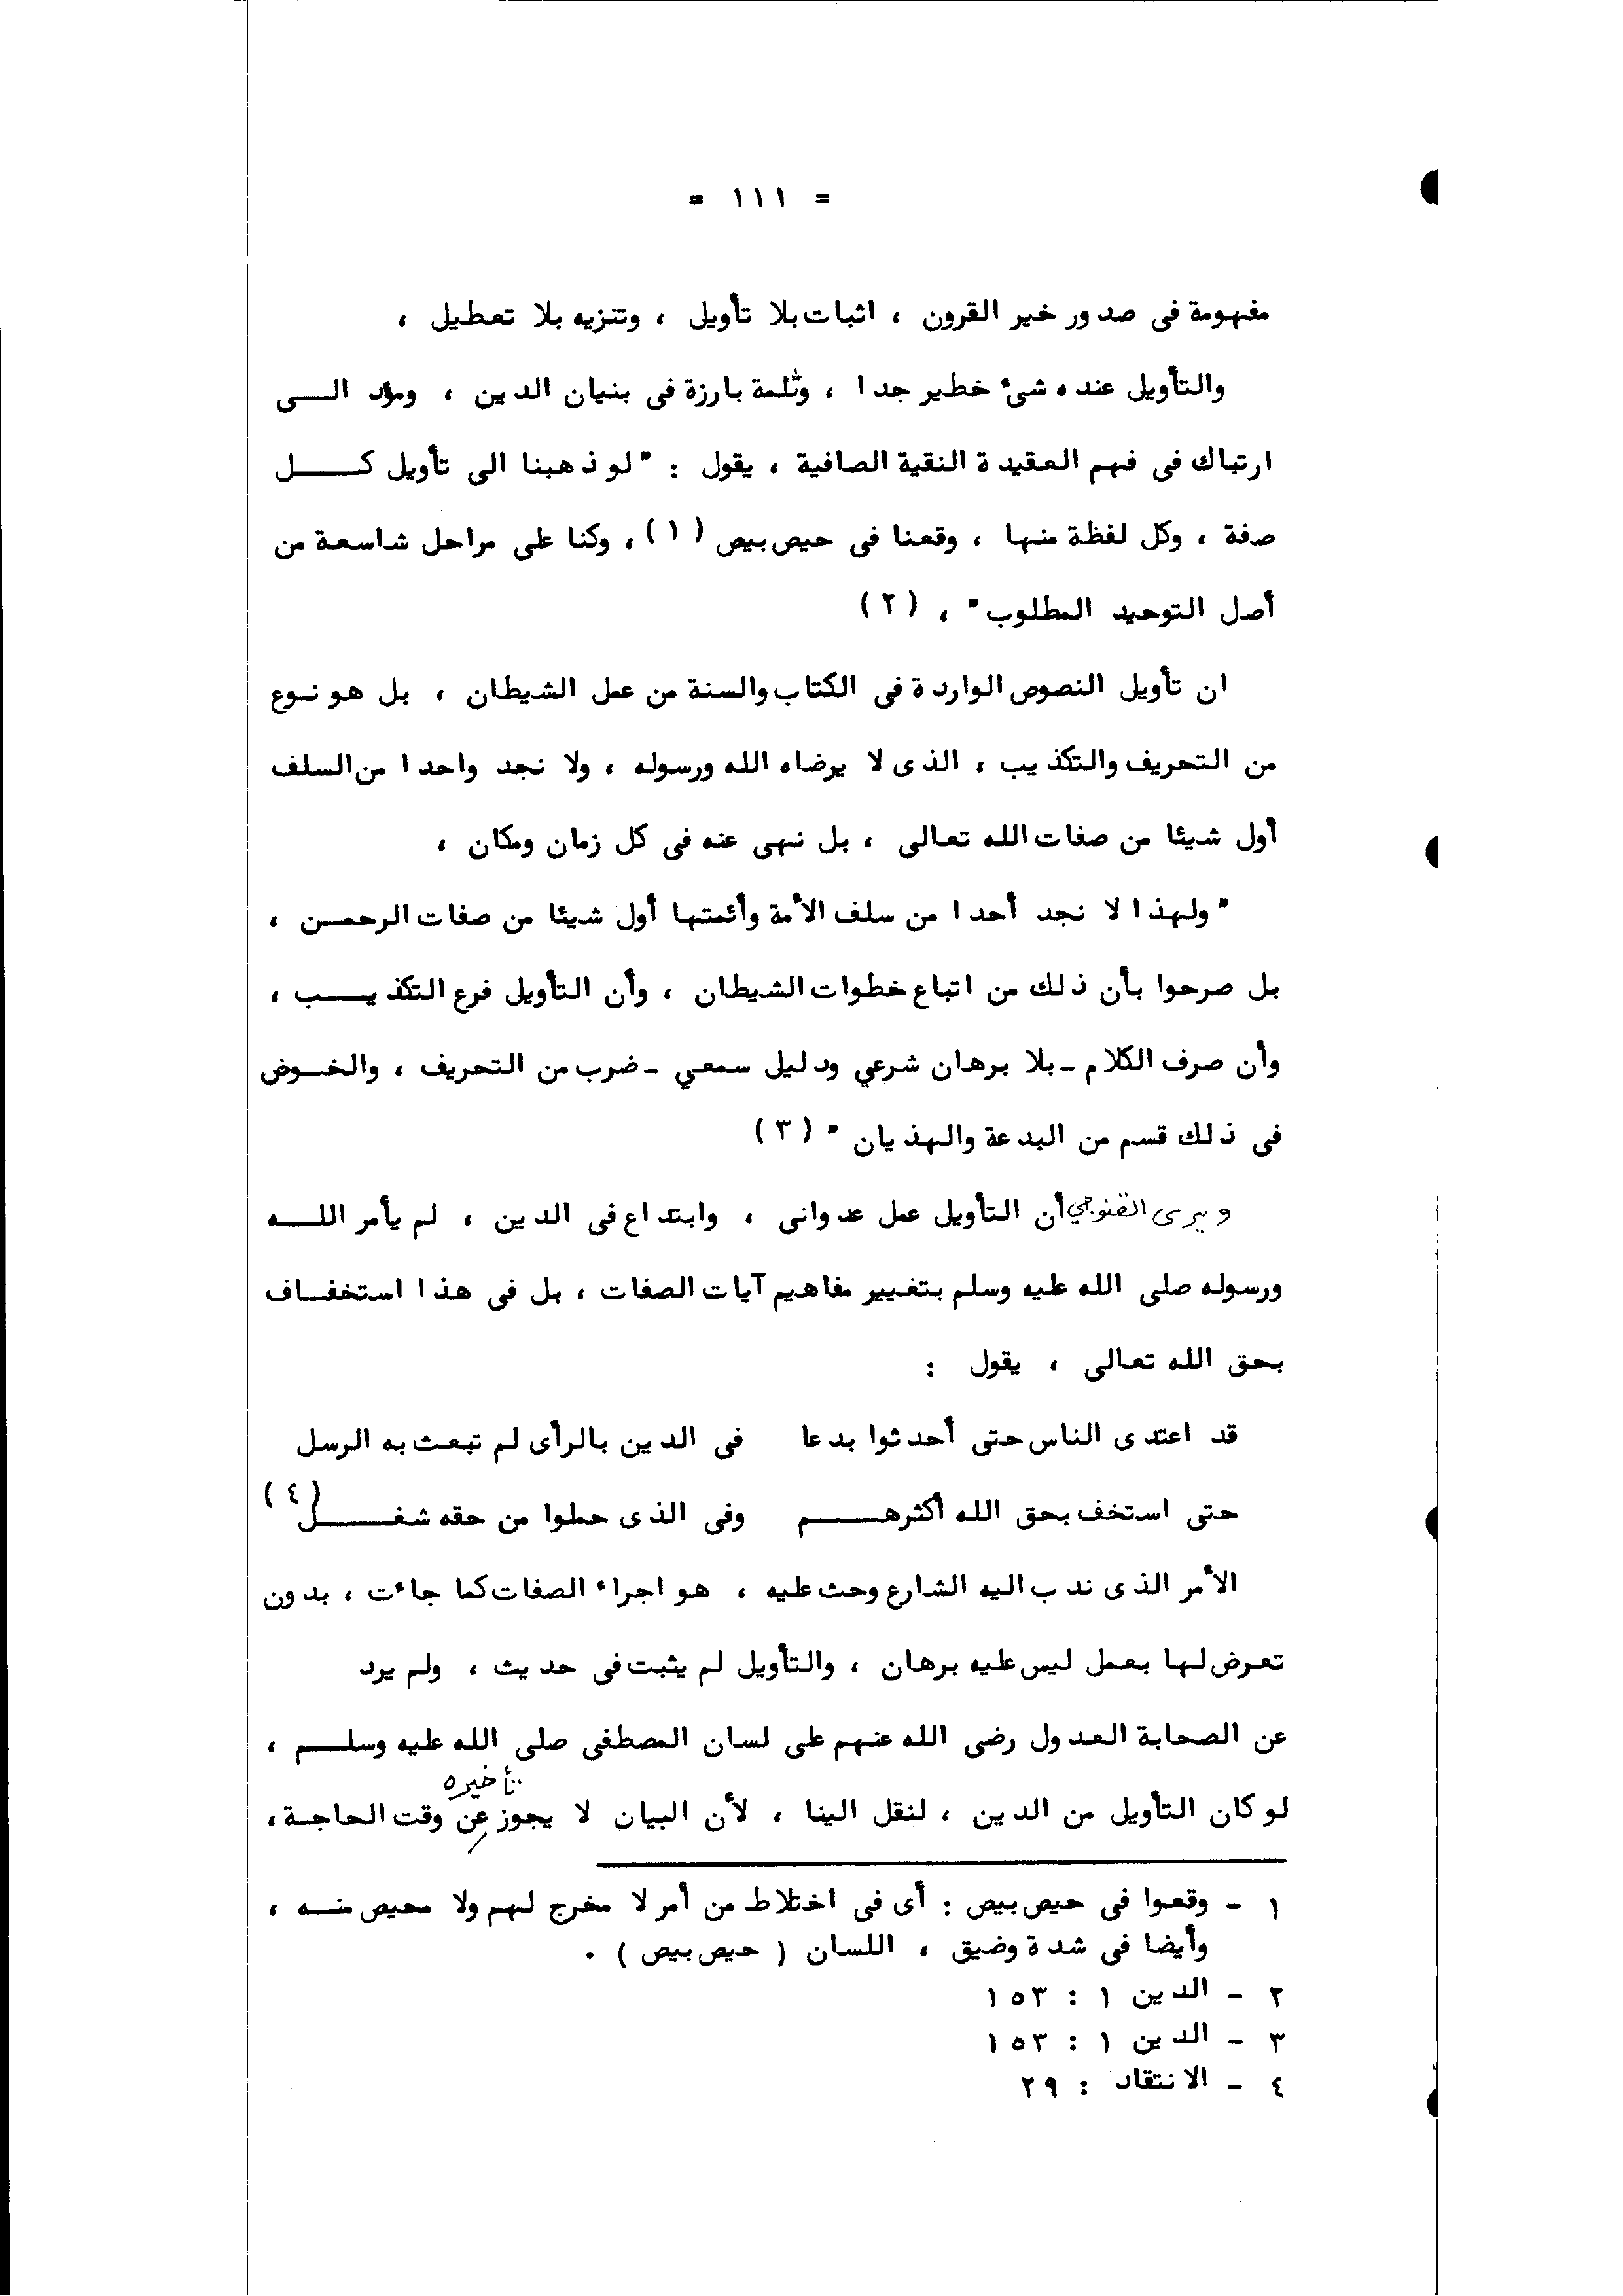 = ١١١ =
مفهومة فى صدور خير القرون ، اثبات بلا تأويل ، وتنزيه بلا تعطيل ،
والتأويل عنده شىء خطير جدا ، وثلمة بارزة فى بنيان الدين ، ومؤد الى
ارتباك فى فهم العقيدة النقية الصافية ، يقول : " لو ذهبنا الى تأويل كل
صفة ، وكل لفظة منها ، وقعنا فى حيص بيص (١) ، وكنا على مراحل شاسعة من
أصل التوحيد المطلوب " ، (٢)
ان تأويل النصوص الواردة فى الكتاب والسنة من عمل الشيطان ، بل هو نوع
من التحريف والتكذيب ، الذى لا يرضاه الله ورسوله ، ولا نجد واحدا من السلف
أول شيئا من صفات الله تعالى ، بل نهى عنه فى كل زمان ومكان ،
" ولهذا لا نجد أحدا من سلف الأمة وأئمتها أول شيئا من صفات الرحمن ،
بل صرحوا بأن ذلك من اتباع خطوات الشيطان ، وأن التأويل فرع التكذيب ،
وأن صرف الكلام - بلا برهان شرعي ودليل سمعي - ضرب من التحريف ، والخوض
فى ذلك قسم من البدعة والهذيان " (٣)
ويرى القنوجي أن التأويل عمل عدوانى ، وابتداع فى الدين ، لم يأمر الله
ورسوله صلى الله عليه وسلم بتغيير مفاهيم آيات الصفات ، بل فى هذا استخفاف
بحق الله تعالى ، يقول :
قد اعتدى الناس حتى أحدثوا بدعا فى الدين بالرأى لم تبعث به الرسل
حتى استخف بحق الله أكثرهم وفى الذى حملوا من حقه شغل (٤)
الأمر الذى ندب اليه الشارع وحث عليه ، هو اجراء الصفات كما جاءت ، بدون
تعرض لها بعمل ليس عليه برهان ، والتأويل لم يثبت فى حديث ، ولم يرد
عن الصحابة العدول رضى الله عنهم على لسان المصطفى صلى الله عليه وسلم ،
لو كان التأويل من الدين ، لنقل الينا ، لأن البيان لا يجوز تأخيره عن وقت الحاجة ،
١ - وقعوا فى حيص بيص : أى فى اختلاط من أمر لا مخرج لهم ولا محيص منه ،
وأيضا فى شدة وضيق ، اللسان ( حيص بيص ) .
٢ - الدين ١ : ١٥٣
٣ - الدين ١ : ١٥٣
٤ - الانتقاد : ٢٩